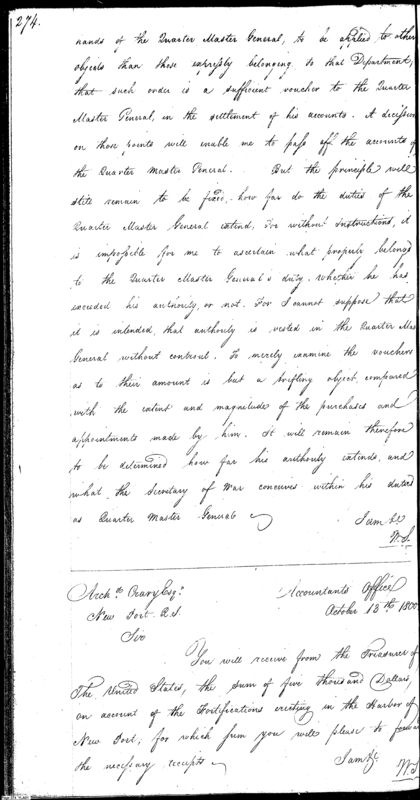 274.
hands of the Quarter Master General, to be applied to other
objects than those expressly belonging to that Department,
that such order is a sufficient voucher to the Quarter
Master General, in the settlement of his accounts. A decision
on those points will enable me to pass off the accounts of
the Quarter Master General. But the principle will
still remain to be fixed, how far do the duties of the
Quarter Master General extend, For without instructions, it
is impossible for me to ascertain what properly belongs
to the Quarter Master General's duty, whether he has
exceeded his authority, or not. For I cannot suppose that
it is intended, that authority is vested in the Quarter Mas
General without controul. To merely examine the vouchers
as to their amount is but a trifling object, compared
with the extent and magnitude of the purchases and
appointments made by him. It will remain therefore
to be determined how far his authority extends, and
what the Secretary of War conceives within his duties
as Quarter Master General
I am &c
W. S.
Archd. Crary Esqr.
Accountants Office
New Port R.I.
October 13th 1800
Sir
You will receive from the Treasurer of
The United States, the sum of five thousand Dollars,
on account of the Fortifications erecting in the Harbor of
New Port; for which sum you will please to forward
the necessary receipts
I am &c
W. S